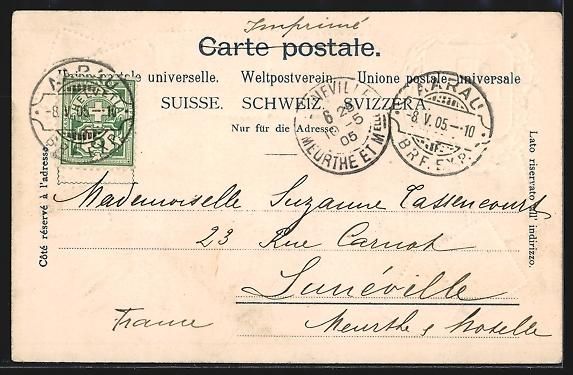 Imprimé
Carte postale.
Union postale universelle. Weltpostverein. Unione postale universale
SUISSE. SCHWEIZ. SVIZZERA.
Nur für die Adresse.
AARAU
8.V.05.-10
BRF. EXP.
LUNEVILLE
6 25
9-5
05
MEURTHE ET Mlle
AARAU
-8.V.05.-10
BRF. EXP.
Côté réservé à l'adresse.
Lato riservato all' indirizzo.
Mademoiselle Suzanne Cassencourt
23 Rue Carnot
Lunéville
France
Meurthe & Moselle